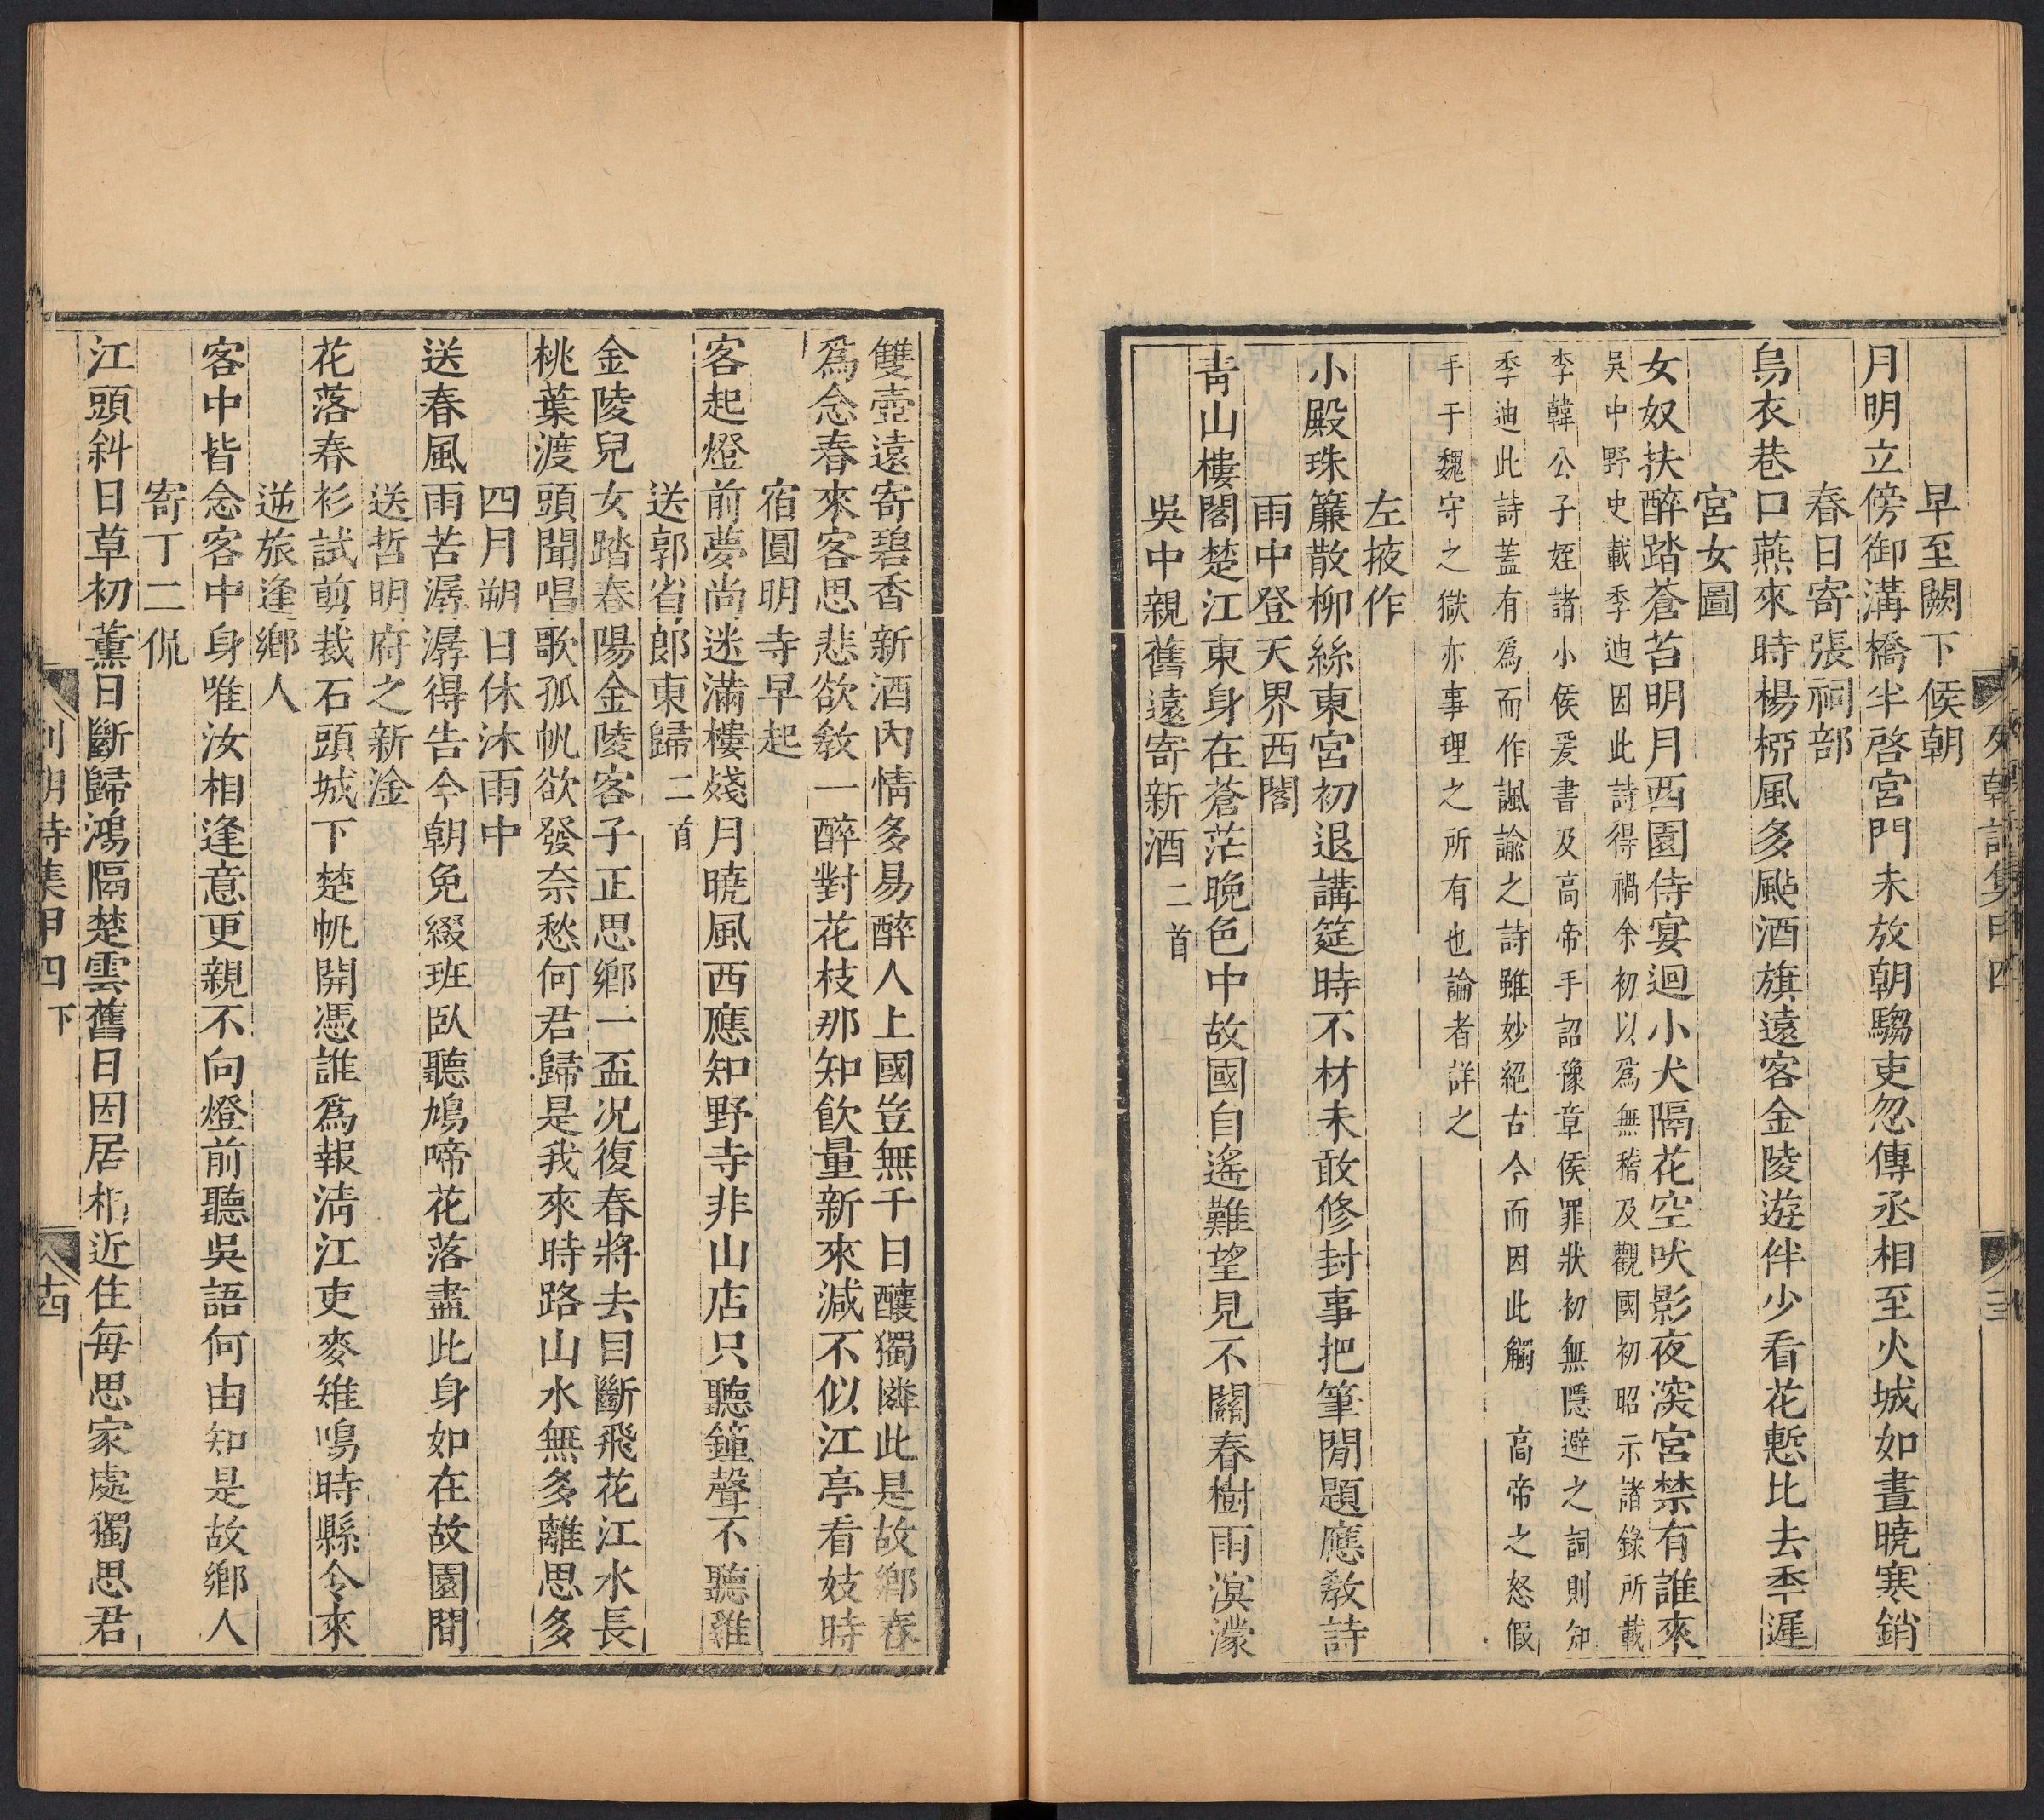 早至闕下候朝
月明立傍御溝橋半啓宮門未放朝騶吏忽傳丞相至火城如晝曉寒銷
春日寄張祠部
烏衣巷口燕來時楊栁風多颭酒旗遠客金陵遊伴少看花慙比去秊遲
宮女圖
女奴扶醉踏蒼苔明月西園侍宴迴小犬隔花空吠影夜深宮禁有誰來
吳中野史載季迪因此詩得禍余初以爲無稽及觀國初昭示諸錄所載
李韓公子姪諸小侯爰書及高帝手詔豫章侯罪狀初無隱避之詞則知
季迪此詩葢有爲而作諷諭之詩雖妙絕古今而因此觸 高帝之怒假
手于魏守之獄亦事理之所有也論者詳之
左掖作
小殿珠簾散柳絲東宮初退講筵時不材未敢修封事把筆閒題應敎詩
雨中登天界西閣
靑山樓閣楚江東身在蒼茫晚色中故國自遙難望見不關春樹雨溟濛
吳中親舊遠寄新酒二首
列朝詩集甲四
雙壺遠寄碧香新酒內情多易醉人上國豈無千日釀獨憐此是故鄉春
爲念春來客思悲欲敎一醉對花枝那知飮量新來減不似江亭看妓時
宿圓明寺早起
客起燈前夢尚迷滿樓殘月曉風西應知野寺非山店只聽鐘聲不聽雞
送郭省郎東歸二首
金陵兒女踏春陽金陵客子正思鄉一盃况復春將去目斷飛花江水長
桃葉渡頭聞唱歌孤帆欲發奈愁何君歸是我來時路山水無多離思多
四月朔日休沐雨中
送春風雨苦潺潺得告今朝免綴班臥聽鳩啼花落盡此身如在故園間
送哲明府之新淦
花落春衫試剪裁石頭城下楚帆開憑誰爲報淸江吏麥雉鳴時縣令來
逆旅逢鄉人
客中皆念客中身唯汝相逢意更親不向燈前聽吳語何由知是故鄉人
寄丁二侃
江頭斜日草初薰日斷歸鴻隔楚雲舊日因居相近住每思家處獨思君
列朝詩集甲四下